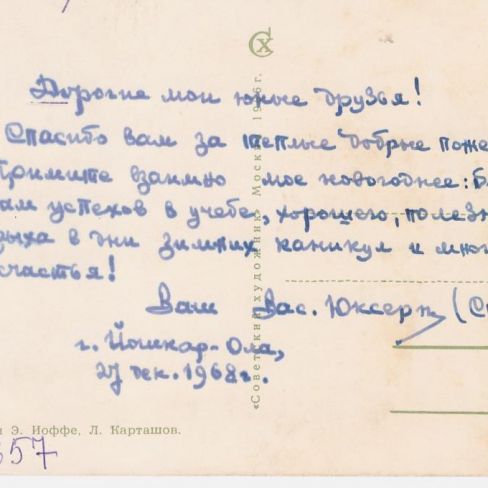 СХ
Дорогие мои юные друзья!
Спасибо вам за теплые добрые поже
Примите взаимно мое новогоднее: Б
ам успехов в учебе, хорошего, полезн
дыха в дни зимних каникул и мно
счастья!
Ваш Вас. Юксерн (С
г. Йошкар-Ола,
27 дек. 1968 г.
«Советский художник» Москва 19 6 г.
и Э. Иоффе, Л. Карташов.
357